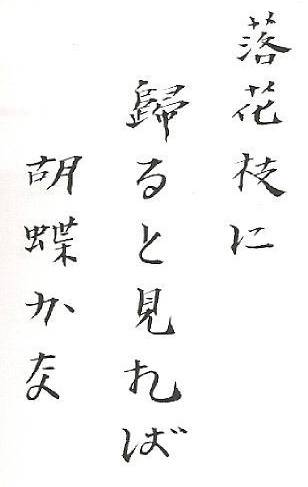 落花枝に
歸ると見れば
胡蝶かな